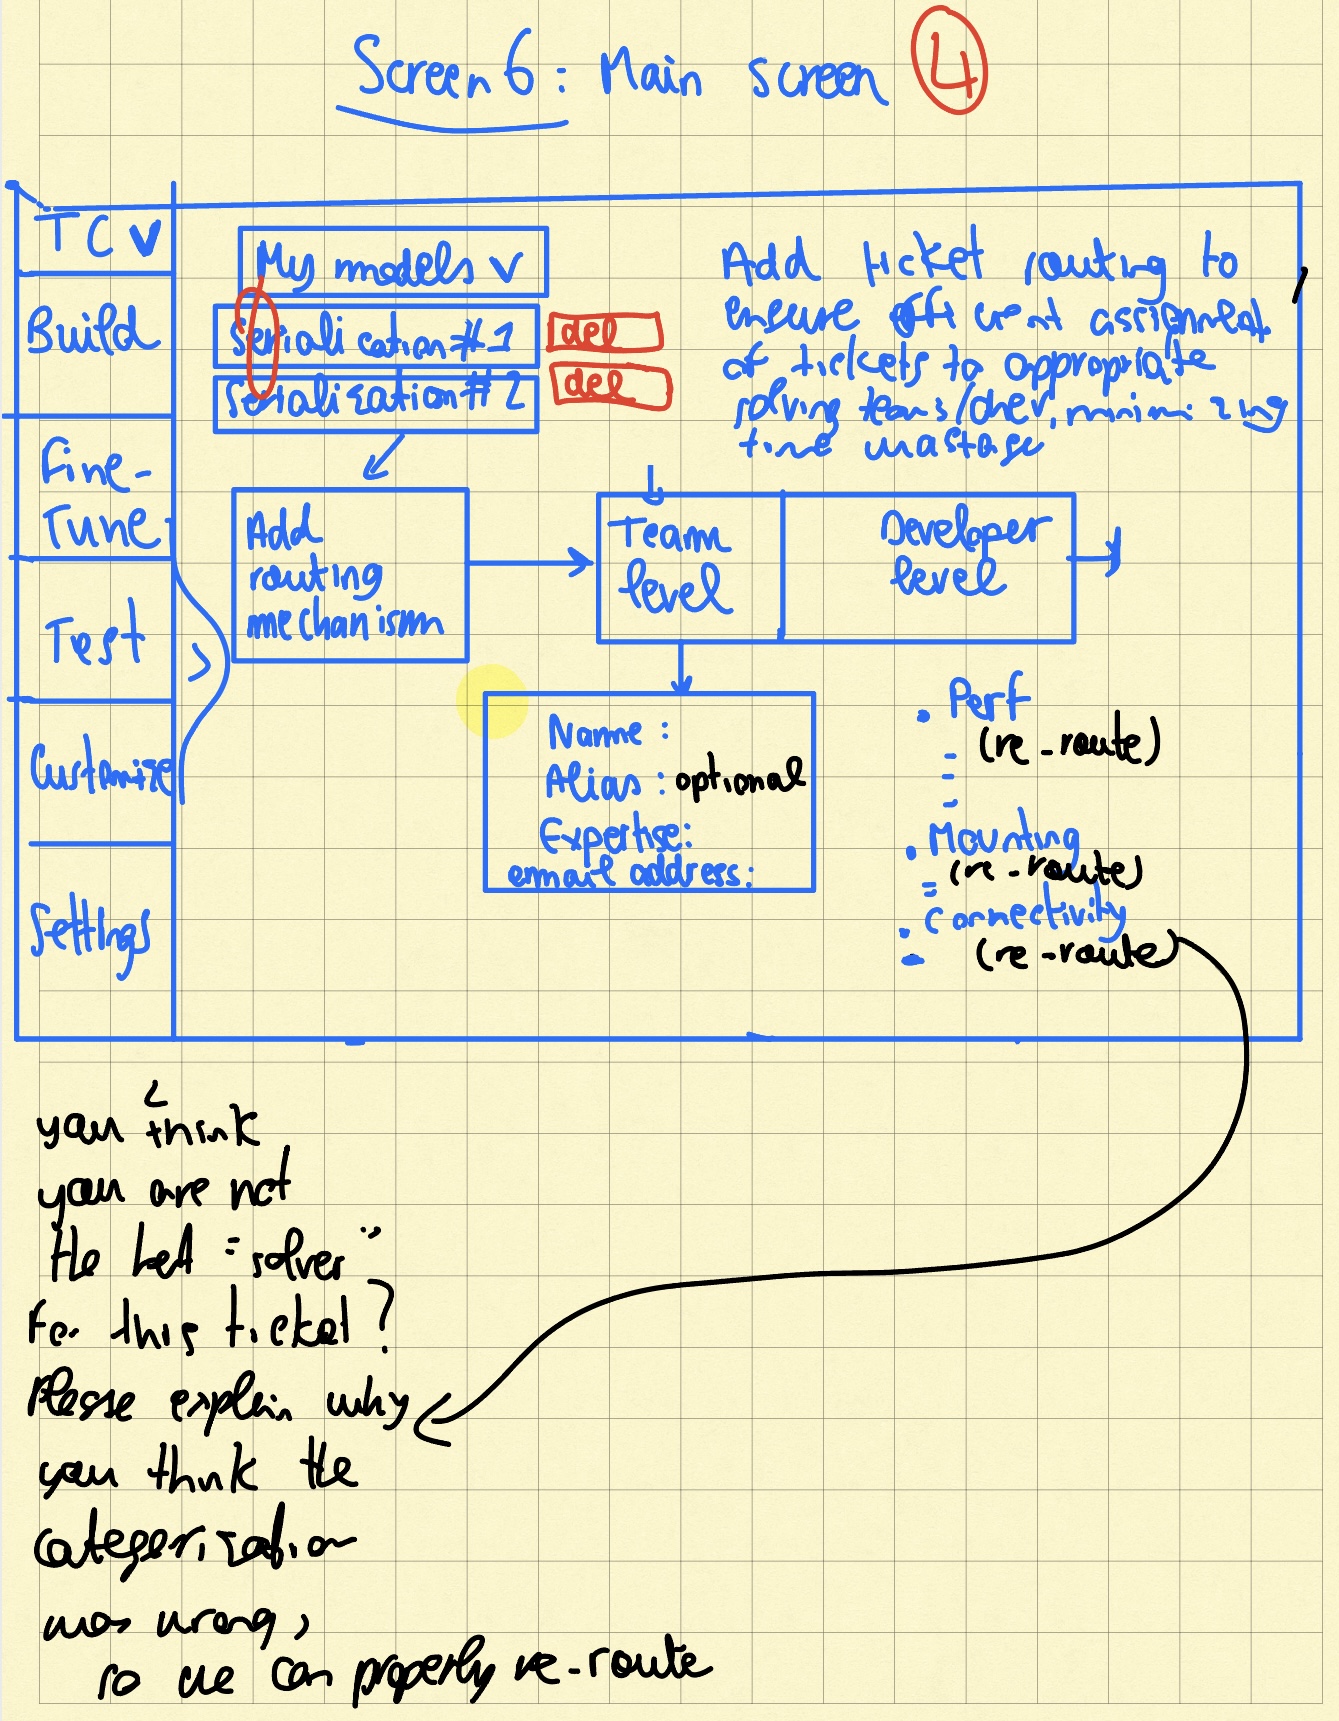 Screen 6: Main screen 4
TC
Build
Fine-
Tune
Test
Customize
Settings
My models
Serialication #1 del
Serialization #2 del
Add ticket routing to
ensure assignment
of tickets to appropriate
solving teams/
time wastage
Add
routing
mechanism
Team
level
Developer
level
Name :
Alias : optional
Expertise:
email address:
Perf
(re-route)
Mounting
(re-route)
Connectivity
(re-route)
you think
you are not
the best "solver"
for this ticket?
Please explain why
you think the
categorization
was wrong,
so we can properly re-route